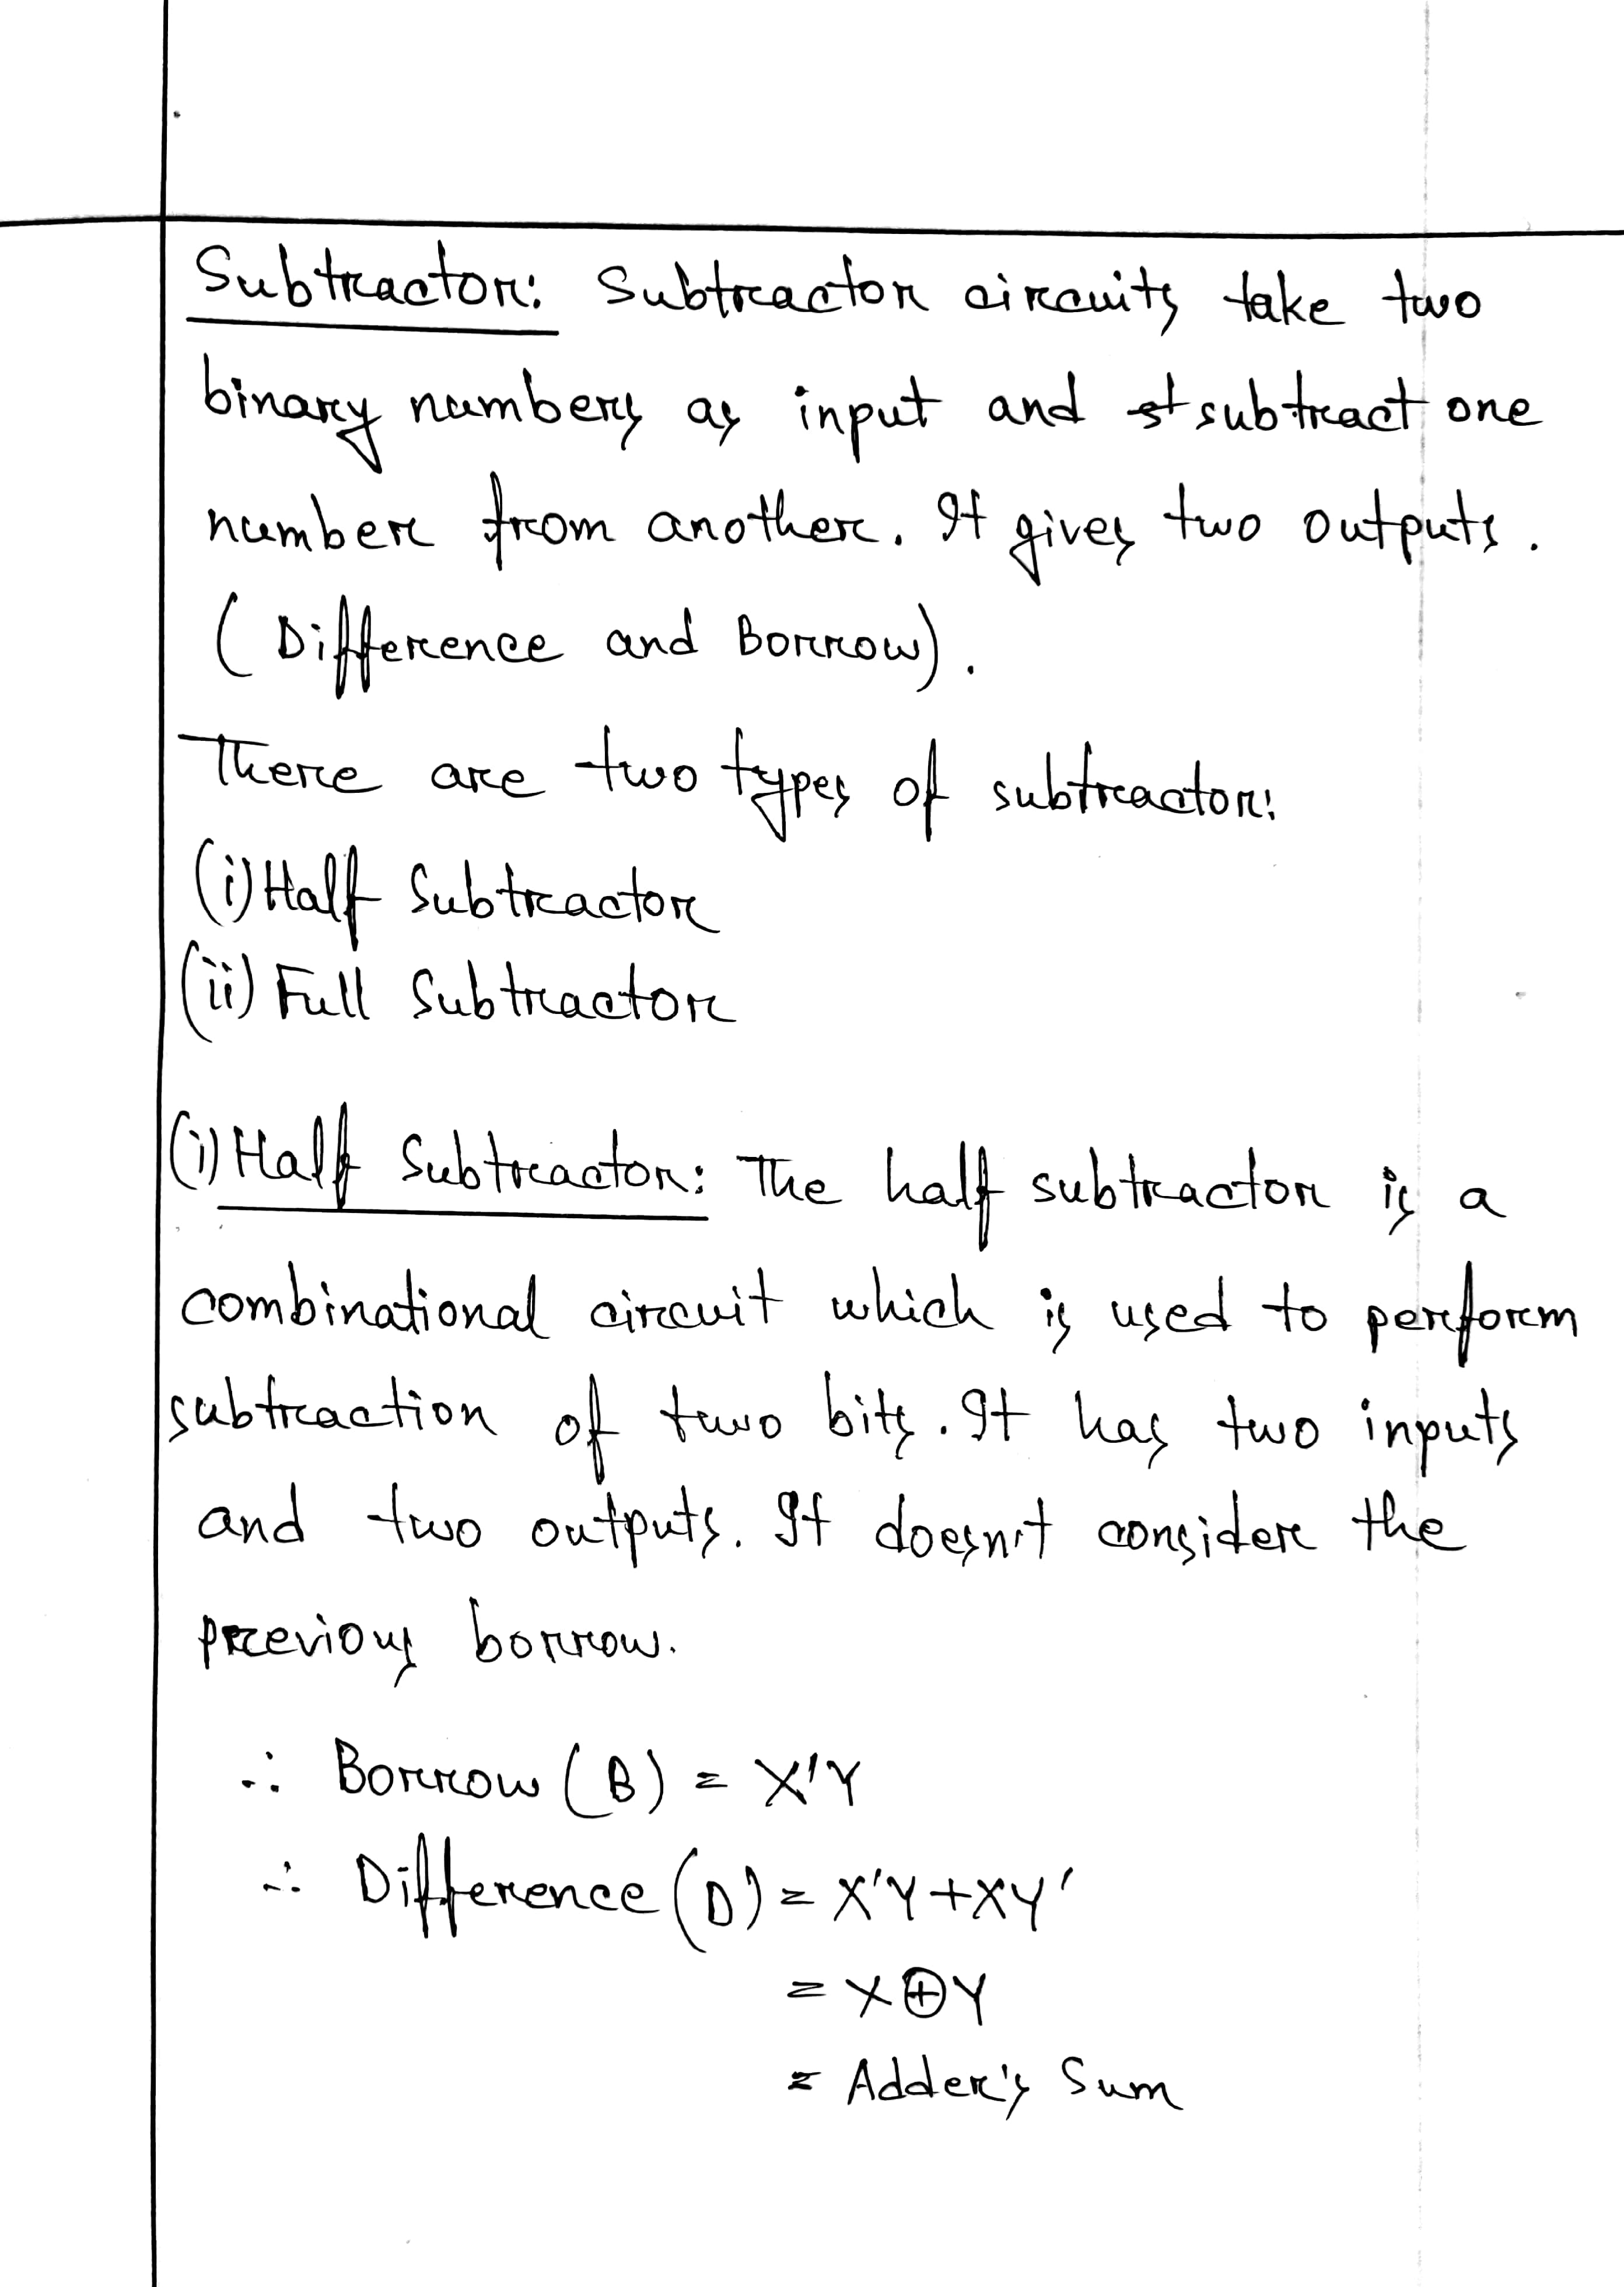 Subtractor: Subtractor circuits take two
binary numbers as input and st subtract one
number from another. It gives two outputs.
(Difference and Borrow).
There are two types of subtractor:
(i) Half Subtractor
(ii) Full Subtractor
(i) Half Subtractor: The half subtractor is a
combinational circuit which is used to perform
subtraction of two bits. It has two inputs
and two outputs. It doesn't consider the
previous borrow.
∴ Borrow (B) = X'Y
∴ Difference (D) = X'Y+XY'
= X⊕Y
= Adder's Sum